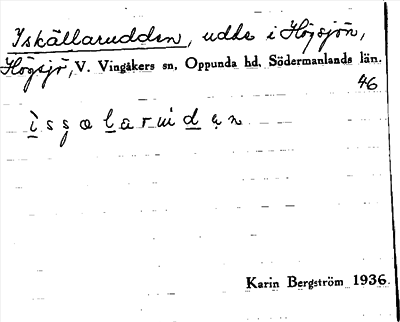 Iskällarudden, udde i Högsjön,
Högsjö, V. Vingåkers sn, Oppunda hd, Södermanlands län.
46
Karin Bergström 1936.